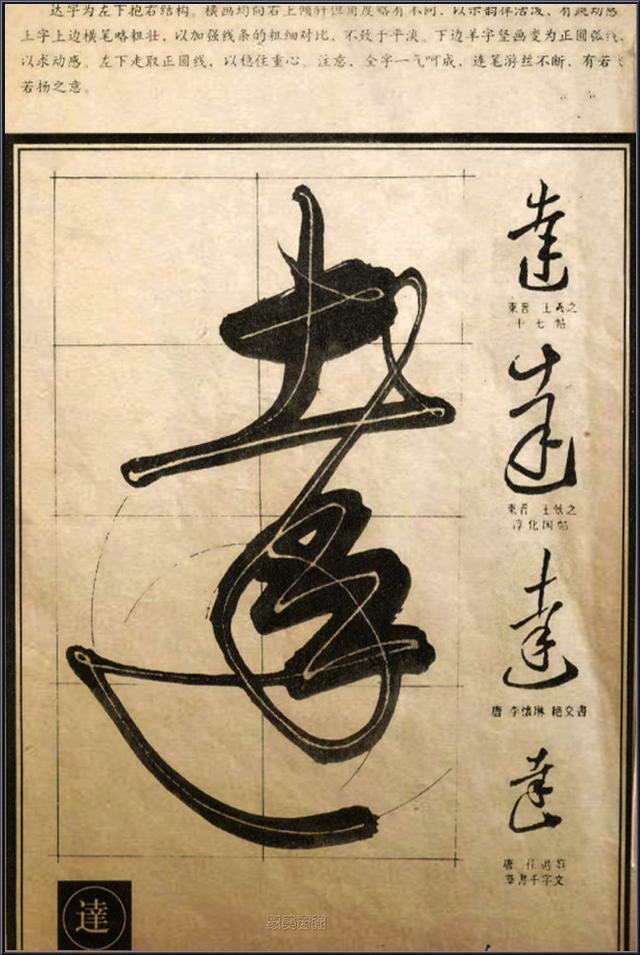 达字为左下抱右结构。横画均向右上倾斜但角度略有不同，以求韵律活泼，有跳动感
土字上边横笔略粗壮，以加强线条的粗细对比，不致于平淡。下边羊字竖画变为正圆弧线，
以求动感。左下走取正圆线，以稳住重心。注意，全字一气呵成，连笔游丝不断，有若
若扬之意。
達
達
東晋 王羲之
十七帖
達
東晋 王羲之
淳化阁帖
達
唐 李懷琳 絶交書
達
唐
草書千字文
達